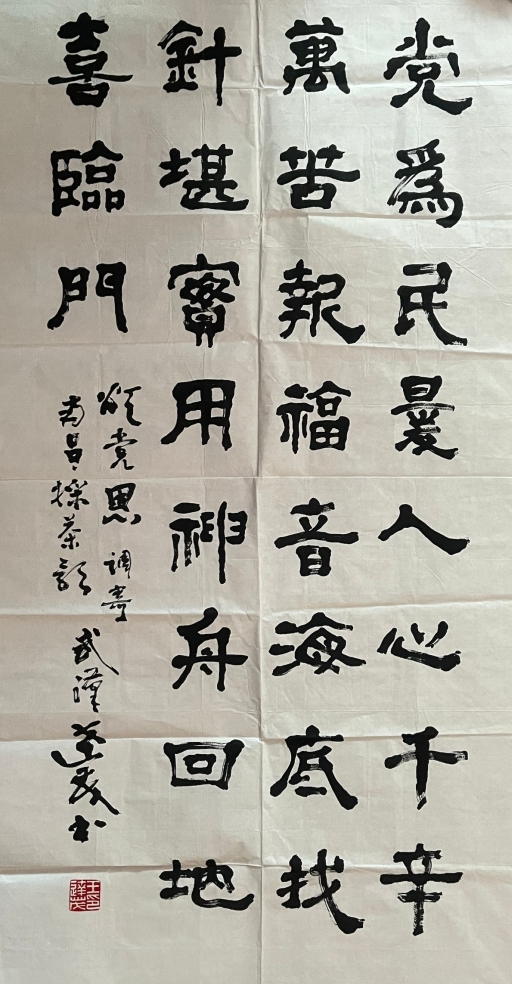 党為民人心千辛
萬苦報福音海底找
針堪實用神舟回地
喜臨門
頌党恩 調寄
南昌採茶歌
武漢達茂书
王印達茂